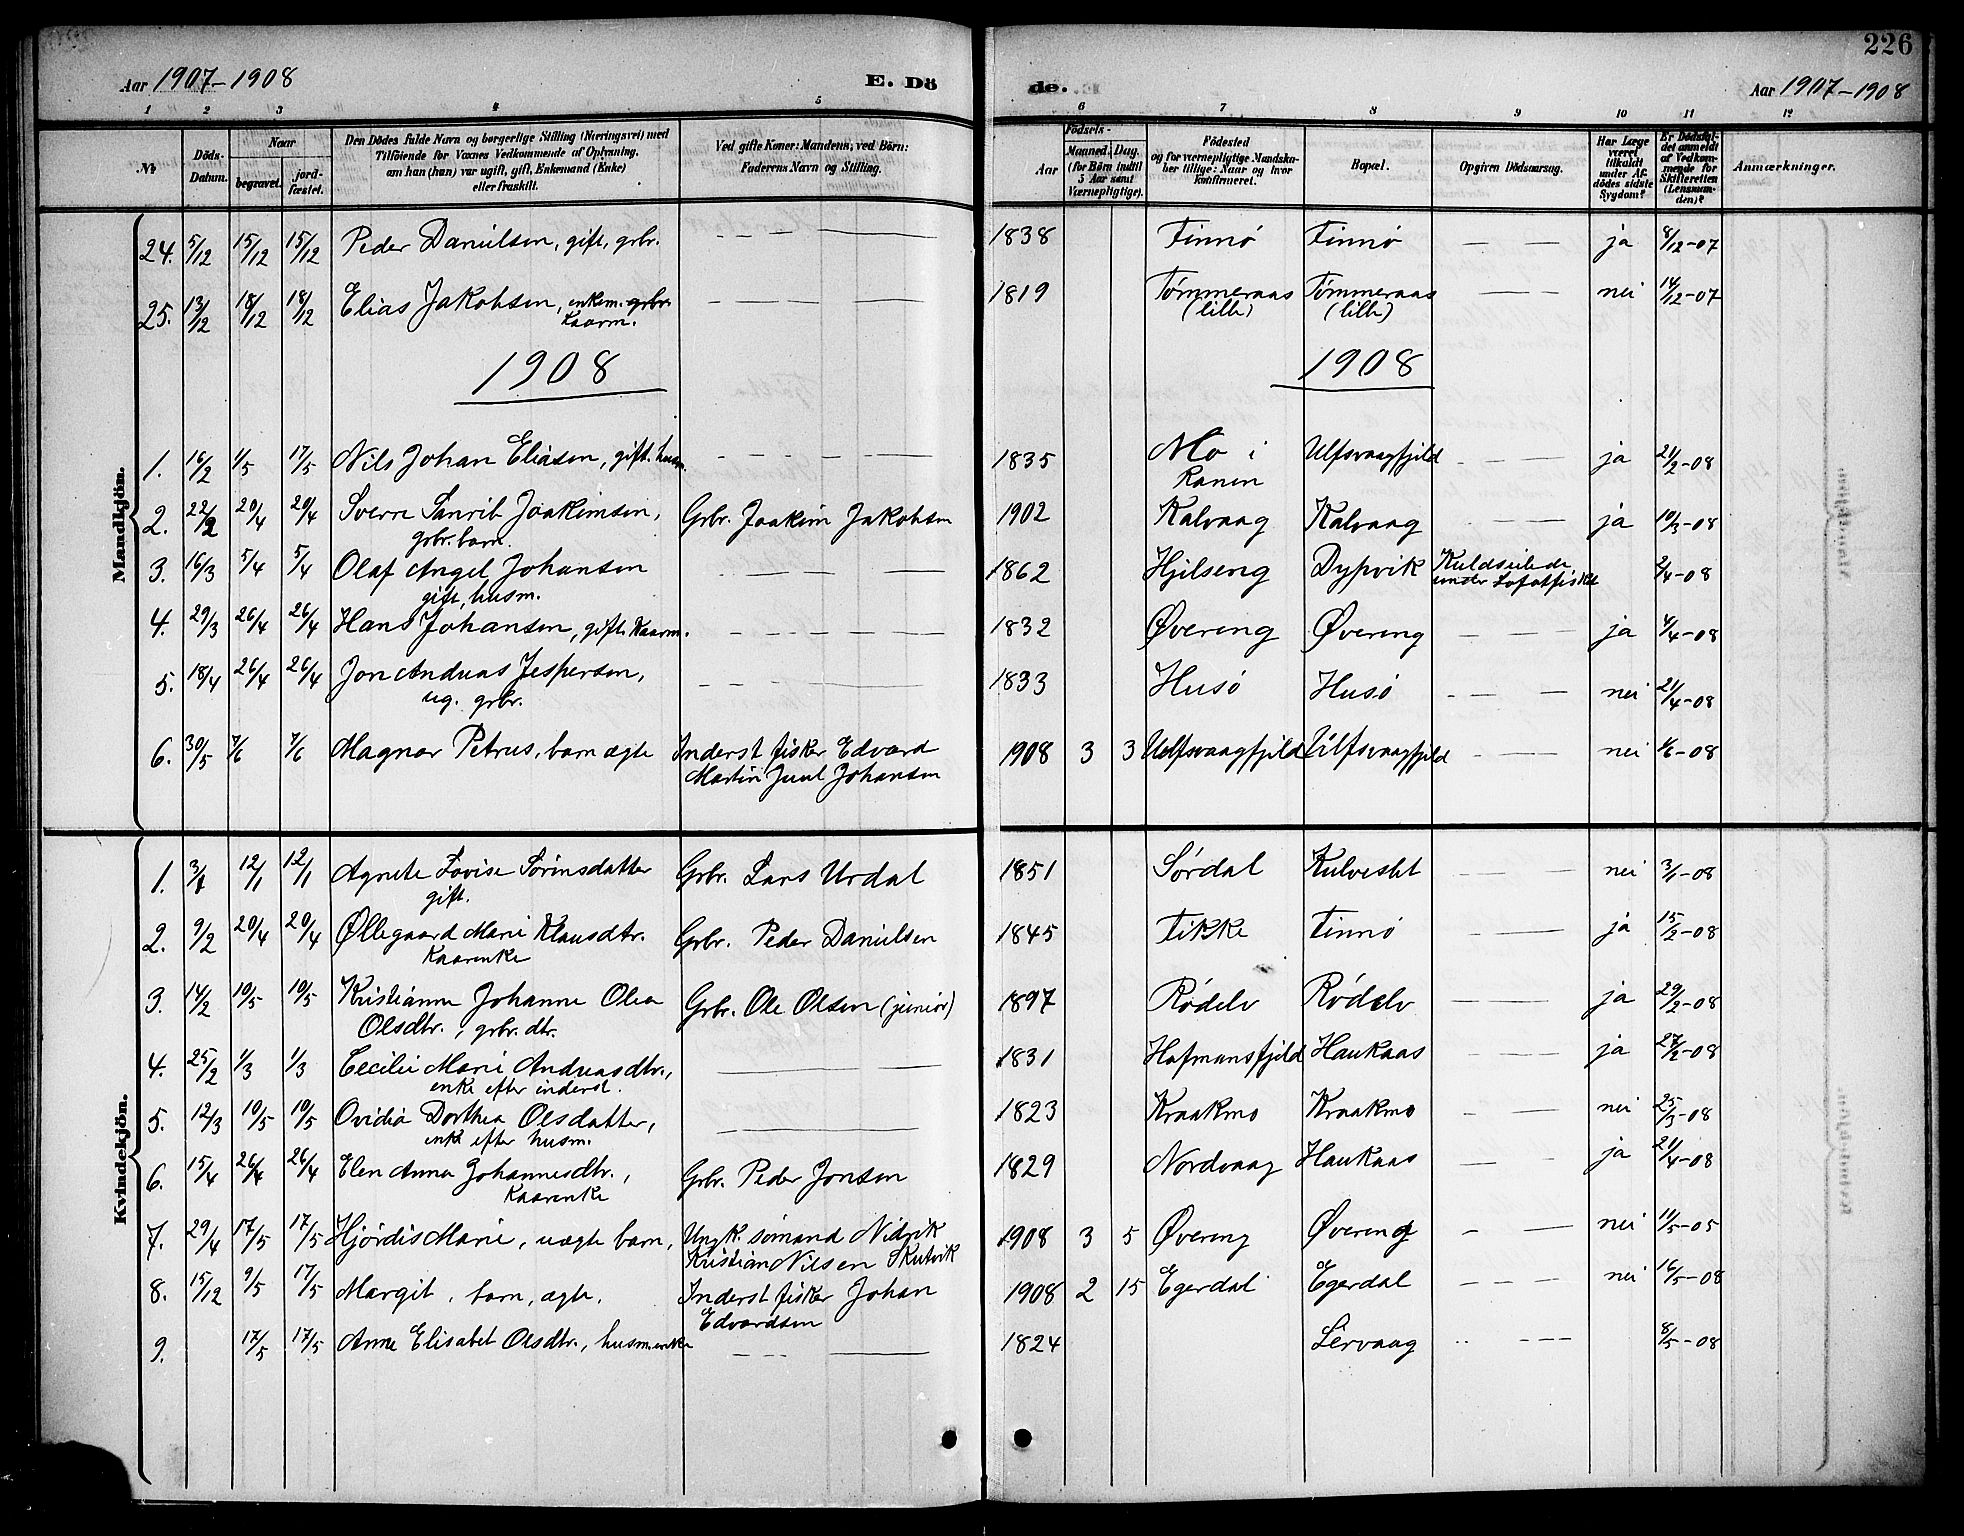 226
Aar 1907-1908 E. Dö de. Aar 1907-1908
1 2 3 4 5 6 7 8 9 10 11 12
№ Döds-Datum. Naar begravet. jord-fæstet. Den Dödes fulde Navn og borgerlige Stilling (Næringsvei) med Tilföiende for Voxnes Vedkommende af Oplysning, om han (hun) var ugift, gift, Enkemand (Enke) eller fraskilt. Ved gifte Koner: Mandens, ved Börn: Faderens Navn og Stilling. Födsels- Aar Maaned. Dag. (for Börn indtil 5 Aar samt Værnepligtige). Födested og for værnepligtige Mandskaber tillige: Naar og hvor konfirmeret. Bopæl. Opgiven Dödsaarsag. Har Læge været tilkaldt under Afdödes sidste Sygdom? Er Dödsfaldet anmeldt af Vedkommende for Skifteretten (Lensmanden)? Anmærkninger.
Mandkjön.
24. 5/12 15/12 15/12 Peder Danielsen, gift, grbr. — — — 1838 Finnø Finnø — — ja 8/12-07
25. 13/12 18/12 18/12 Elias Jakobsen, enkem. grbr. — — — 1819 Tømmeraas Tømmeraas — — nei 14/12-07
kaarm. (lille) (lille)
1908 1908
1. 16/2 1/5 17/5 Nils Johan Eliasen, gift. husm. — — — 1835 Mo i Ulfsvaagfjeld — — ja 21/2-08
Ranen
2. 22/2 20/4 20/4 Sverre Sanrib Joakimsen, Grbr. Joakim Jakobsen 1902 Kalvaag Kalvaag — — ja 10/3-08
grbr. barn.
3. 16/3 5/4 5/4 Olaf Angel Johansen — — — 1862 Hjelseng Dypvik Kuldseilede 2/4-08
gift, husm. under Lofotfisket
4. 29/3 26/4 26/4 Hans Johansen, gift. Kaarm. — — — 1832 Øvereng Øvereng — — ja 4/4-08
5. 18/4 26/4 26/4 Jon Andreas Jespersen, — — — 1833 Husø Husø — — nei 21/4-08
ug. grbr.
6. 30/5 7/6 7/6 Magnar Petrus, barn ægte Inderst fisker Edvard 1908 3 3 Uelfsvaagfjeld Ulfsvaagfjeld — — nei 1/6-08
Martin Juul Johansen
Kvindekjön.
1. 3/1 12/1 12/1 Agnete Lovise Sørensdatter Grbr. Lars Urdal 1851 Sørdal Kulveslet — — nei 3/1-08
gift.
2. 9/2 20/4 20/4 Øllegaard Marie Klausdtr. Grbr. Peder Danielsen 1845 Fikke Finnø — — ja 15/2-08
Kaarenke
3. 14/2 10/5 10/5 Kristianne Johanne Olea Grbr. Ole Olsen (junior) 1897 Rødelv Rødelv — — ja 29/2-08
Olsdtr., grbr. dtr.
4. 25/2 1/3 1/3 Cecilie Marie Andreasdtr., — — 1831 Hafmansfjeld Haukaas — — ja 27/2-08
enke efter inderst.
5. 12/3 10/5 10/5 Ovidia Dorthea Olsdatter, — — 1823 Kraakmo Kraakmo — — nei 25/3-08
enke efter husm.
6. 15/4 26/4 26/4 Elen Anna Johannesdtr., Grbr. Peder Jonsen 1829 Nordvaag Haukaas — — ja 21/4-08
Kaarenke
7. 29/4 17/5 17/5 Hjørdis Marie, uægte barn, Ungk. sømand Nidrik 1908 3 5 Øvereng Øvereng — — nei 11/5-05
Kristian Nilsen Skutvik
8. 15/12 9/5 17/5 Margit, barn, ægte. Inderst fisker Johan 1908 2 15 Egerdal Egerdal — — nei 16/5-08
Edvardsen
9. 17/5 17/5 Anne Elisabet Olsdtr., husm. enke — — — 1824 Lervaag — — 8/5-08